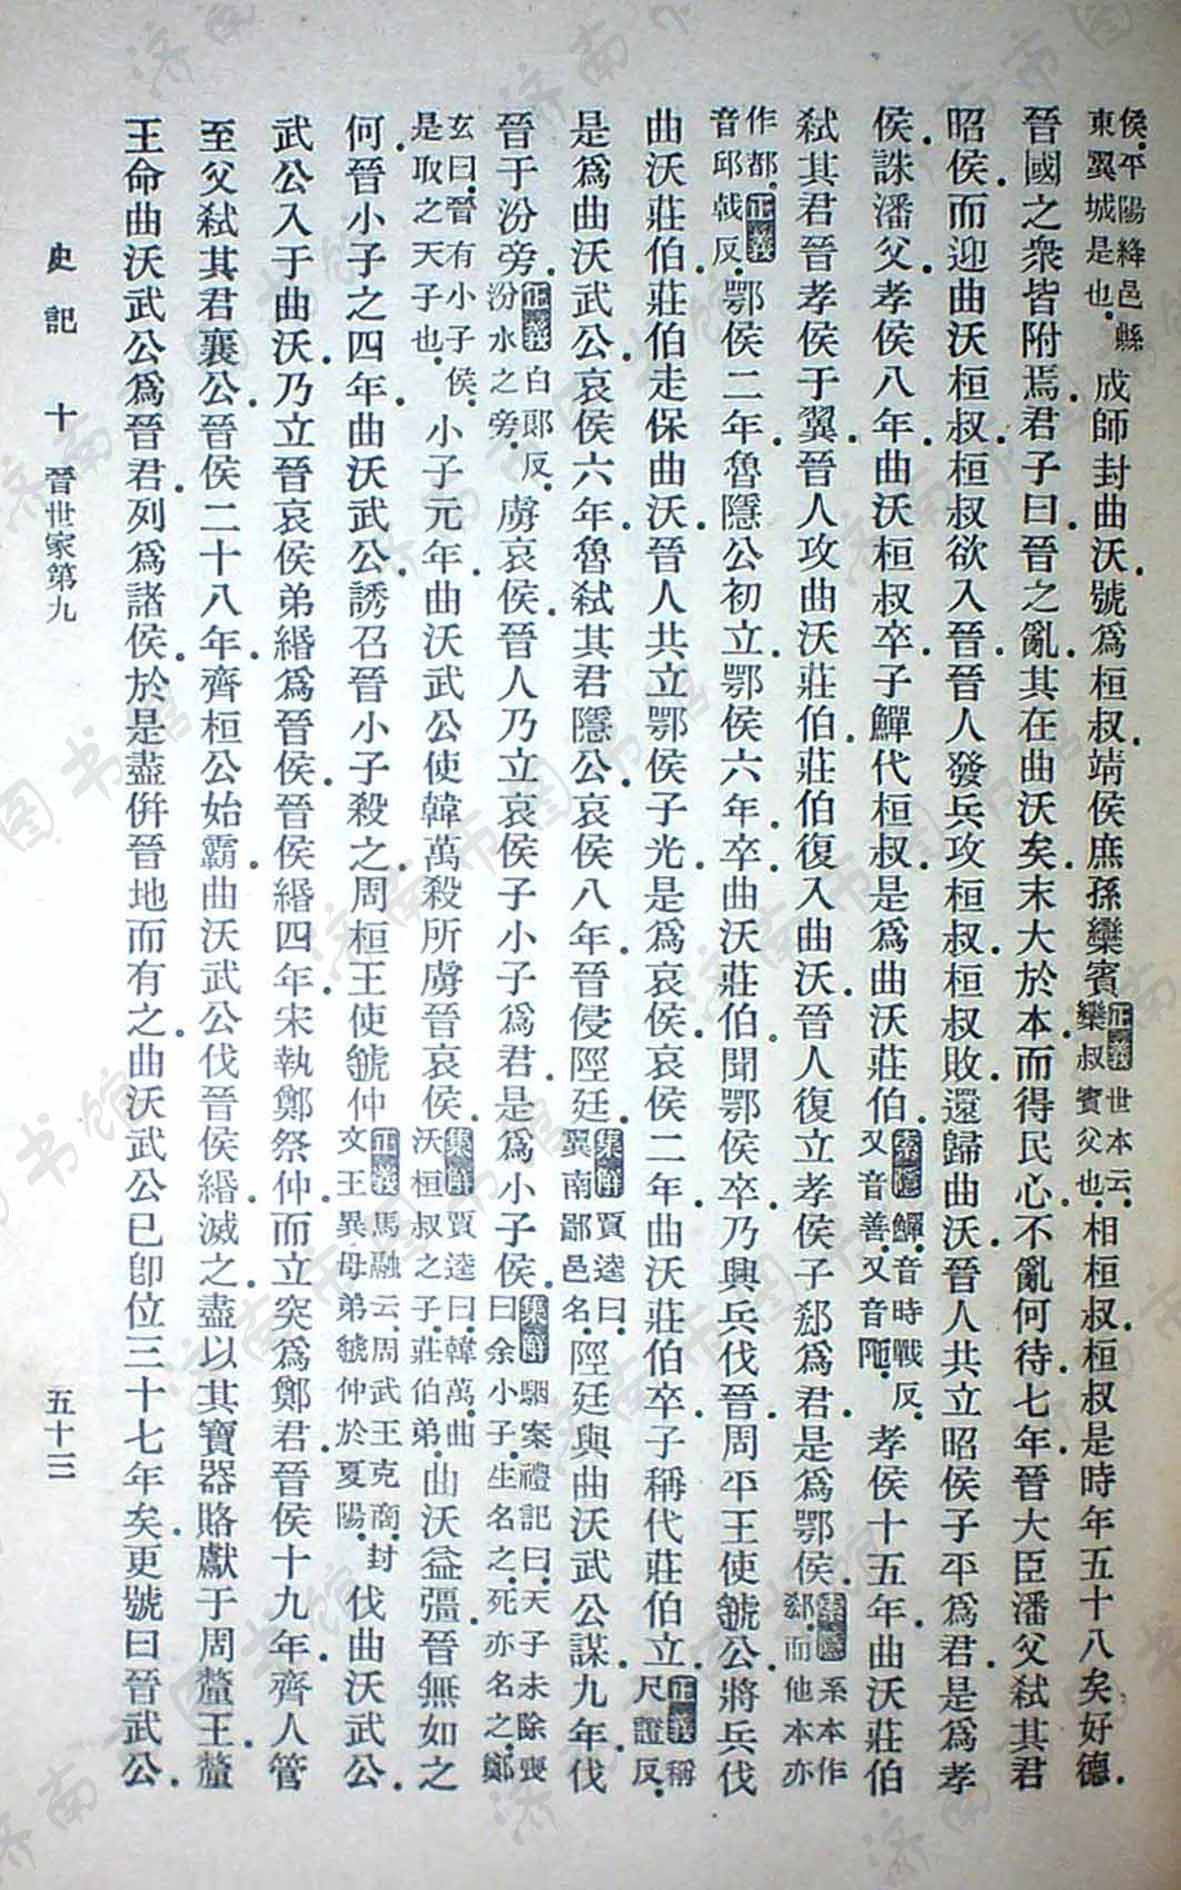 侯。平陽絳邑縣東翼城是也。成師封曲沃。號爲桓叔。靖侯庶孫欒賓正義世本云。欒叔賓父也。相桓叔。桓叔是時年五十八矣。好德。
晉國之衆皆附焉。君子曰。晉之亂。其在曲沃矣。末大於本。而得民心。不亂何待。七年。晉大臣潘父弒其君
昭侯。而迎曲沃桓叔。桓叔欲入晉。晉人發兵攻桓叔。桓叔敗。還歸曲沃。晉人共立昭侯子平爲君。是爲孝
侯。誅潘父。孝侯八年。曲沃桓叔卒。子鱓代桓叔。是爲曲沃莊伯。索隱鱓。音時戰反。又音善。又音陁。孝侯十五年。曲沃莊伯
弒其君晉孝侯于翼。晉人攻曲沃莊伯。莊伯復入曲沃。晉人復立孝侯子郄爲君。是爲鄂侯。索隱系本作郄。而他本亦
作都。正義音郄戟反。鄂侯二年。魯隱公初立。鄂侯六年。卒。曲沃莊伯聞鄂侯卒。乃興兵伐晉。周平王使虢公將兵伐
曲沃莊伯。莊伯走保曲沃。晉人共立鄂侯子光。是爲哀侯。哀侯二年。曲沃莊伯卒。子稱代莊伯立。正義稱尺證反。
是爲曲沃武公。哀侯六年。魯弒其君隱公。哀侯八年。晉侵陘廷。集解賈逵曰。翼南鄙邑名。陘廷與曲沃武公謀。九年。伐
晉于汾旁。正義白郎反。汾水之旁。虜哀侯。晉人乃立哀侯子小子爲君。是爲小子侯。集解駰案禮記曰。天子未除喪曰余小子。生名之。死亦名之。鄭
玄曰。晉有小子侯。是取之天子也。小子元年。曲沃武公使韓萬殺所虜晉哀侯。集解賈逵曰。韓萬。曲沃桓叔之子。莊伯弟。曲沃益彊。晉無如之
何。晉小子之四年。曲沃武公。誘召晉小子殺之。周桓王使虢仲正義馬融云。周武王克商。封文王異母弟虢仲於夏陽。伐曲沃武公。
武公入于曲沃。乃立晉哀侯弟緡爲晉侯。晉侯緡四年。宋執鄭祭仲。而立突爲鄭君。晉侯十九年。齊人管
至父弒其君襄公。晉侯二十八年。齊桓公始霸。曲沃武公伐晉侯緡。滅之。盡以其寶器賂獻于周釐王。釐
王命曲沃武公爲晉君。列爲諸侯。於是盡併晉地而有之。曲沃武公已卽位三十七年矣。更號曰晉武公。
史記 十 晉世家第九 五十三